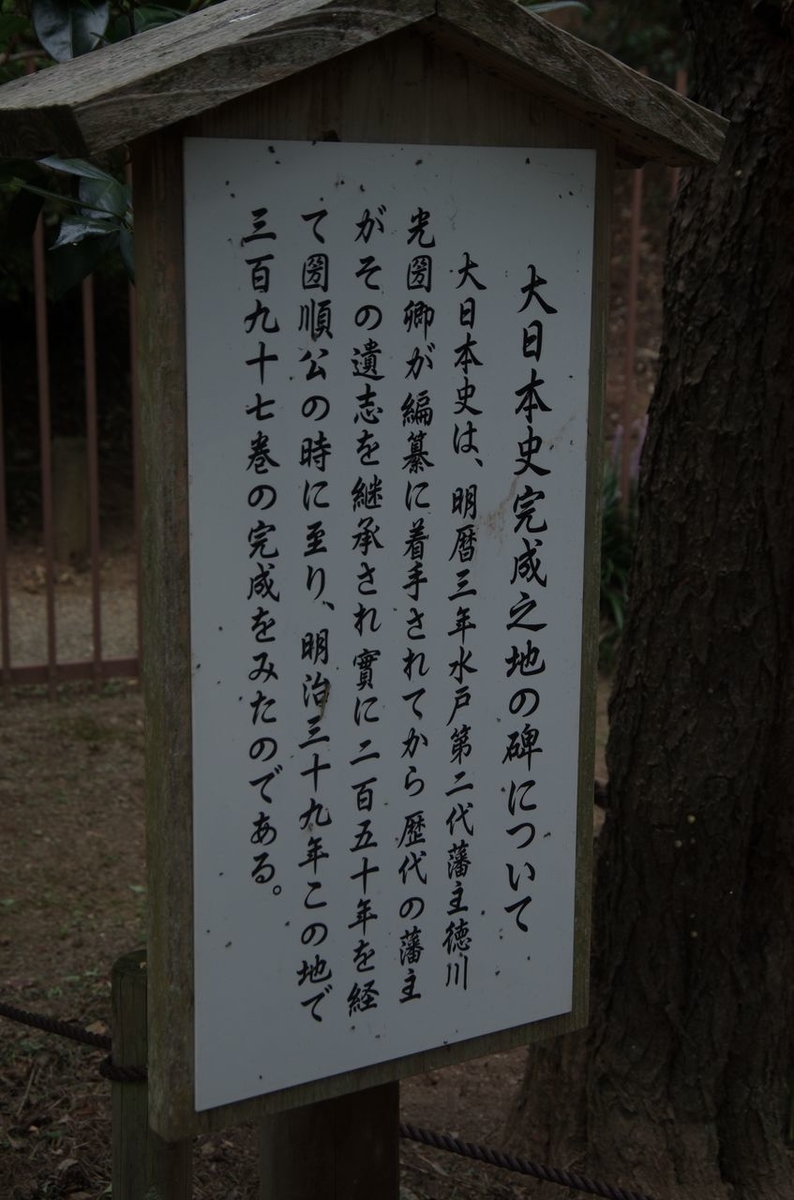 大日本史完成之地の碑について
大日本史は、明暦三年水戸第二代藩主徳川
光圀卿が編纂に着手されてから歴代の藩主
がその遺志を継承され實に二百五十年を経
て圀順公の時に至り、明治三十九年この地で
三百九十七巻の完成をみたのである。